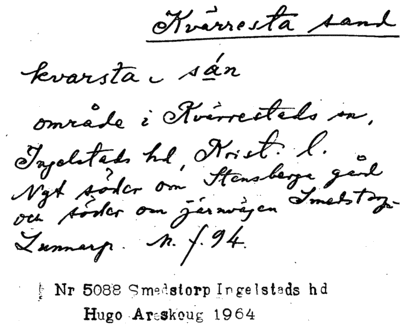 Kvärresta sand
kvarsta sán
område i Kvärrestads sn,
Ingelstads hd, Krist. l.
Ngt söder om Stensberga gård
och söder om järnvägen Smedstorp-
Lunnarp. N. f. 94.
Nr 5088 Smedstorp Ingelstads hd
Hugo Areskoug 1964